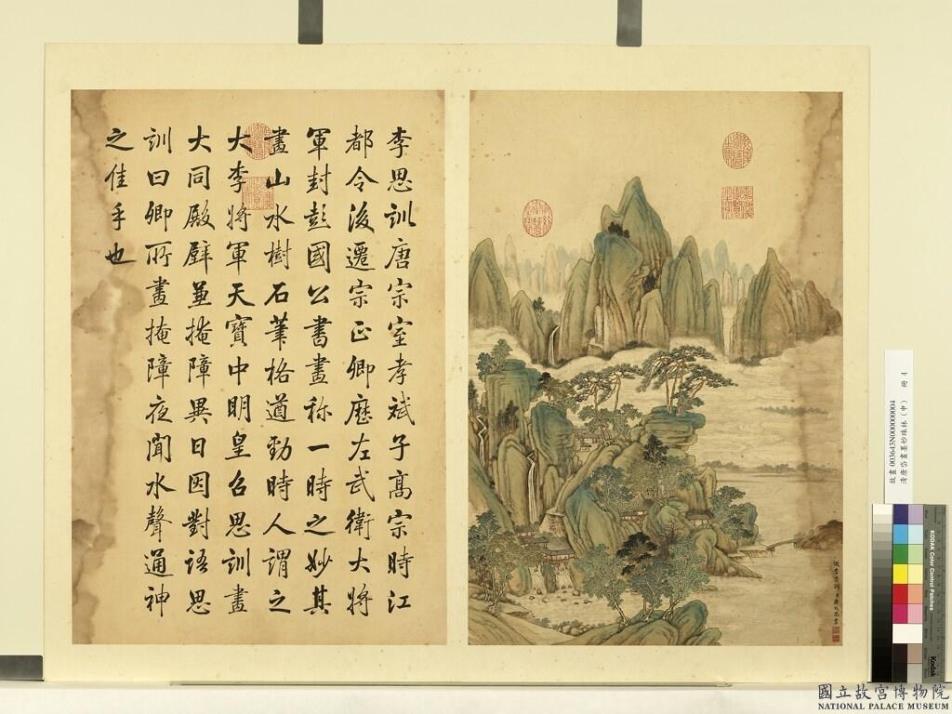 李思訓唐宗室孝斌子高宗時江
都令後遷宗正卿歷左武衛大將
軍封彭國公書畫称一時之妙其
畫山水樹石筆格遒勁時人謂之
大李將軍天寶中明皇召思訓畫
大同殿壁並掩障異日因對語思
訓曰卿所畫掩障夜聞水聲通神
之佳手也
清唐岱畫墨妙珠林（申） 冊 4
KODAK Color Control Patches
Kodak
國立故宮博物院
NATIONAL PALACE MUSEUM